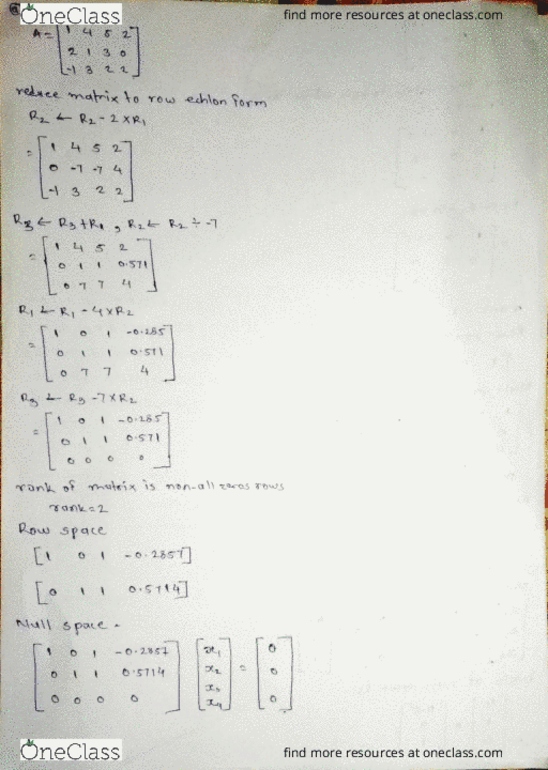 OneClass
find more resources at oneclass.com
A = [ 1 4 5 2
2 1 3 0
-1 3 2 2 ]
reduce matrix to row echlon form
R2 ← R2 - 2 × R1
= [ 1 4 5 2
0 -7 -7 4
-1 3 2 2 ]
R3 ← R3 + R1 , R2 ← R2 ÷ -7
= [ 1 4 5 2
0 1 1 0.571
0 7 7 4 ]
R1 ← R1 - 4 × R2
= [ 1 0 1 -0.285
0 1 1 0.571
0 7 7 4 ]
R3 ← R3 - 7 × R2
= [ 1 0 1 -0.285
0 1 1 0.571
0 0 0 0 ]
rank of matrix is non-all zeros rows
rank = 2
Row space
[ 1 0 1 -0.2857 ]
[ 0 1 1 0.5714 ]
Null space -
[ 1 0 1 -0.2857 ] [ x1 ] = [ 0 ]
[ 0 1 1 0.5714 ] [ x2 ] [ 0 ]
[ 0 0 0 0 ] [ x3 ] [ 0 ]
[ x4 ]
OneClass
find more resources at oneclass.com